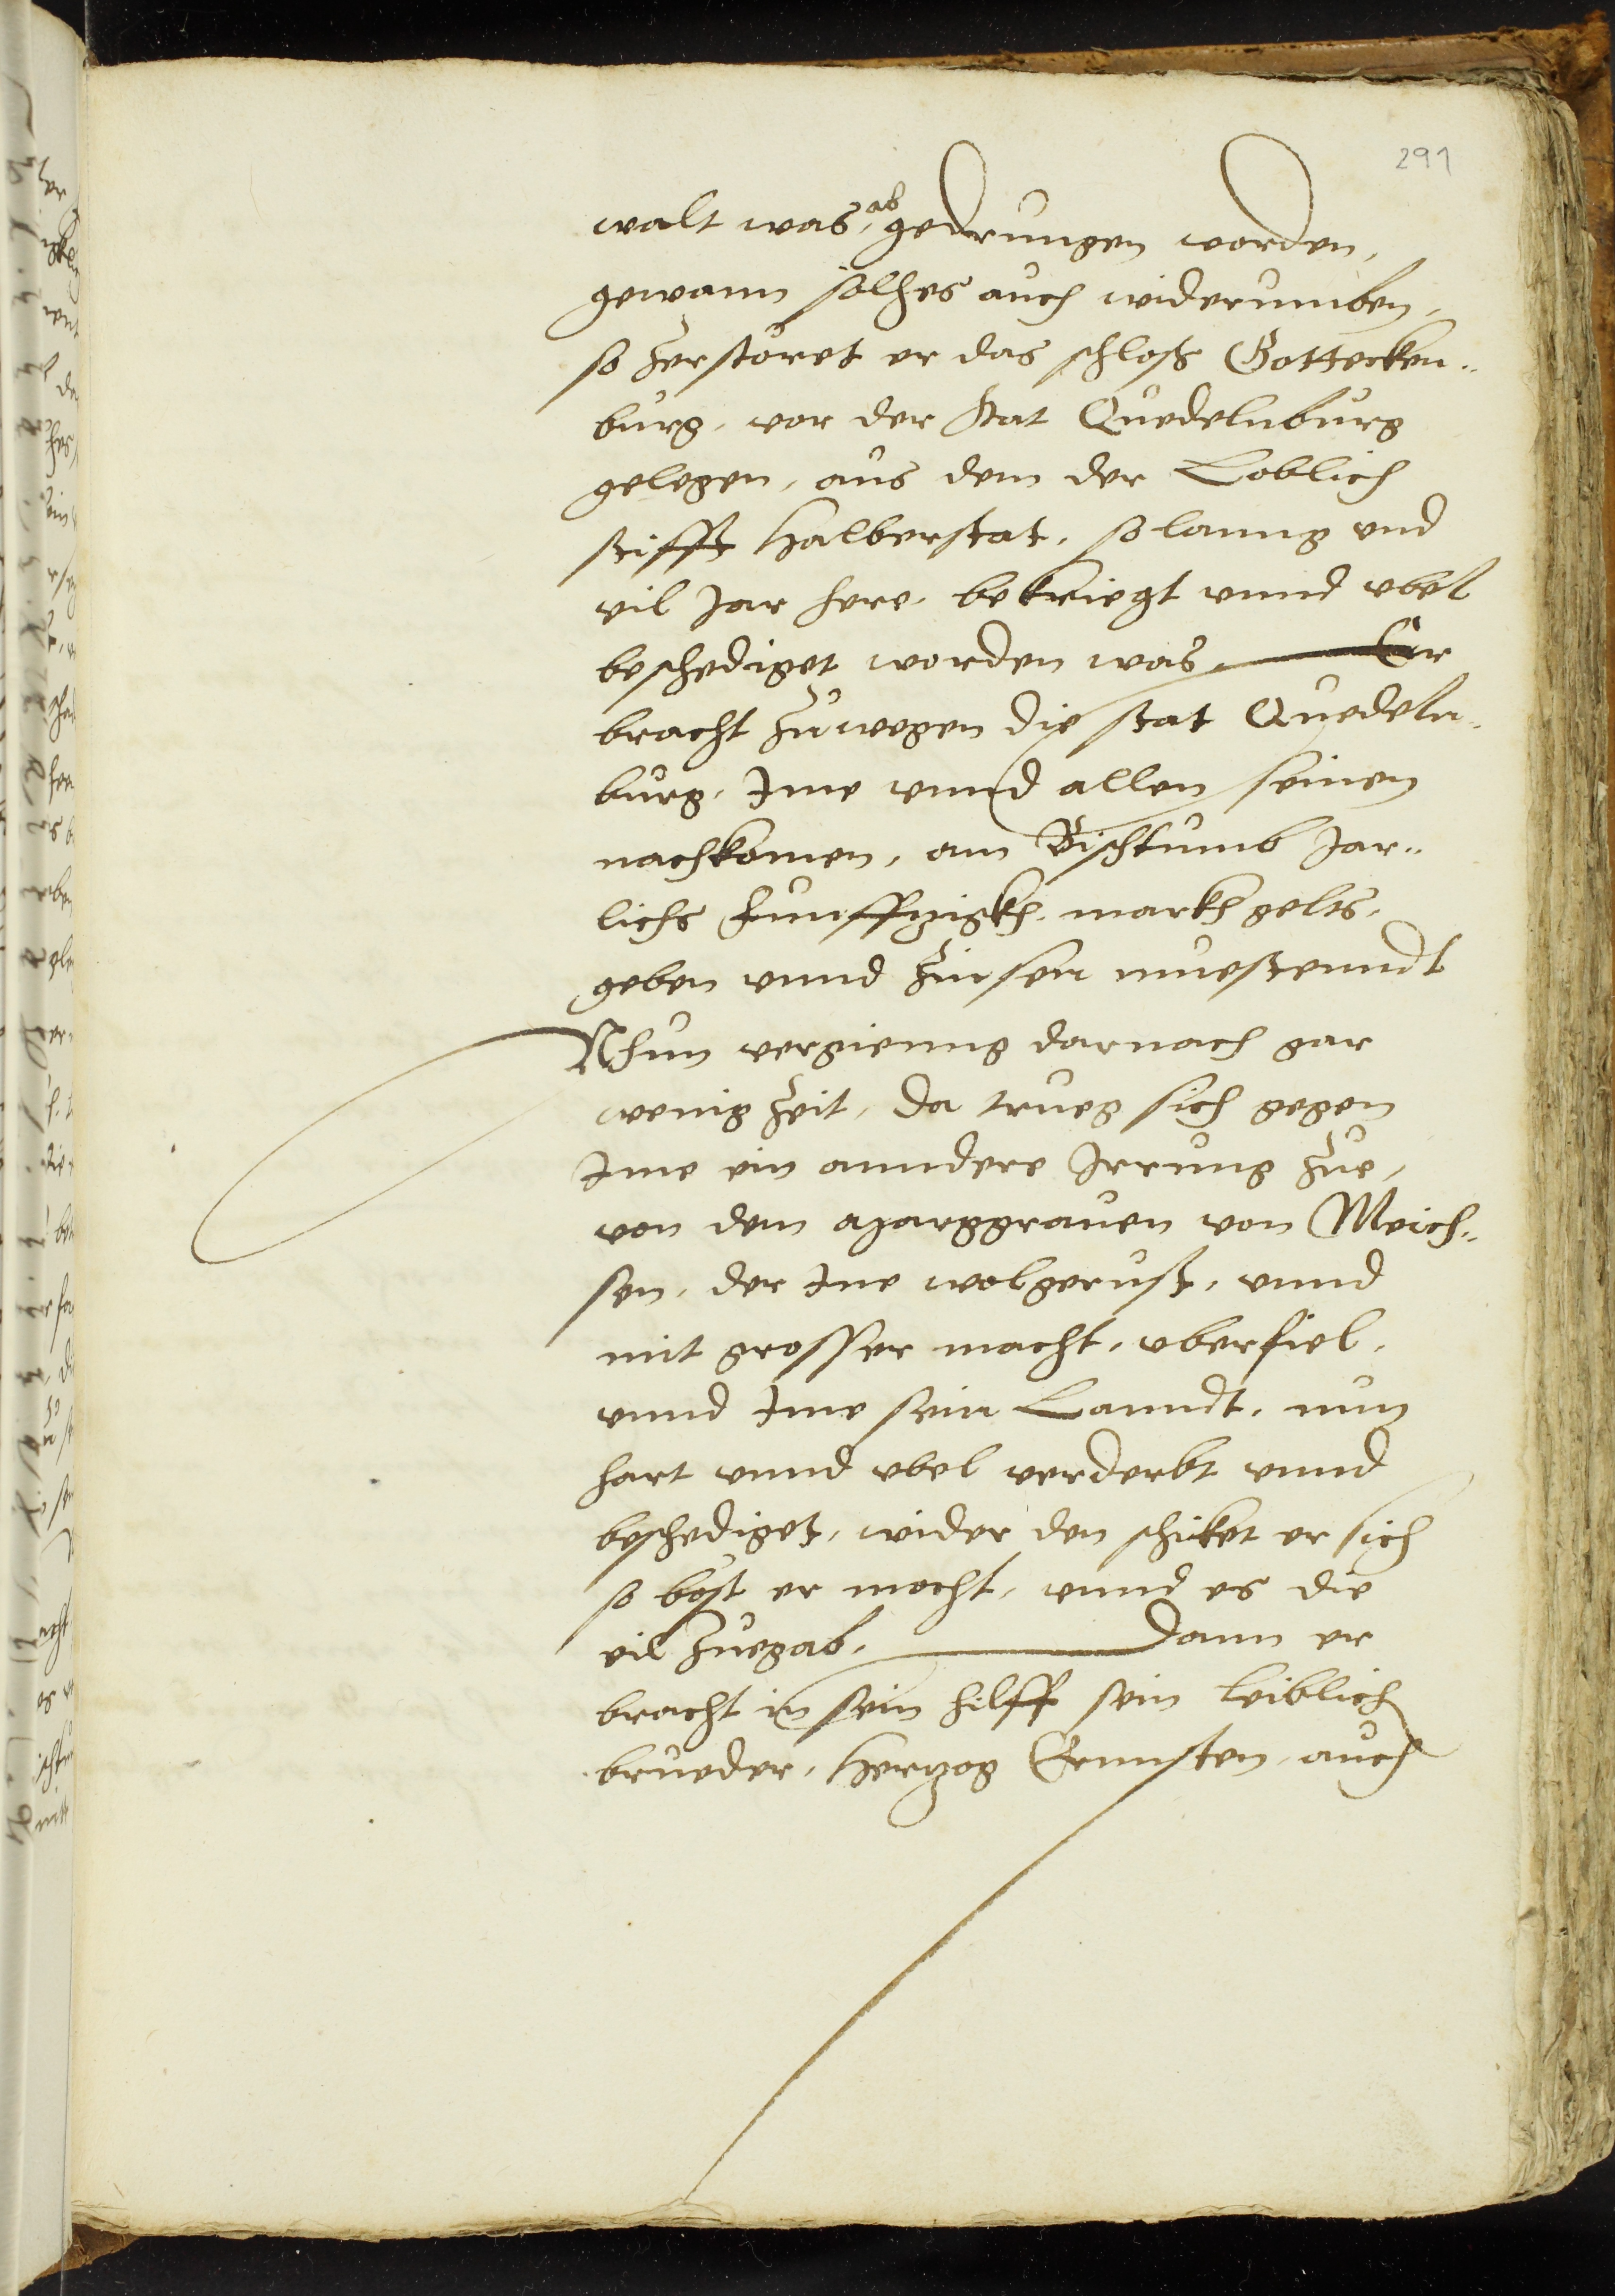 291
walt was, ab gedrungen worden,
gewann solhes auch widerumben,
so zerstöret er das schloß Gottecken„
burg, vor der stat Quedelnburg
gelegen, aus dem der Loblich
stifft Halberstat, so lanng vnd
vil Jar here, bekriegt vnnd vbel
beschediget worden was, Er
bracht zuwegen die stat Quedeln„
burg, Ime vnnd allen seinen
nachkomen, am Bischtumb Jar„
lichs funffzigkh markh gelts,
geben vnnd zinsen muestenndt
Nhun vergienng darnach gar
wenig zeit, da trueg sich gegen
Ime ein anndere Irrung zue,
von dem Marggrauen von Meich„
sen, der Ine wolgerust, vnnd
mit grosser macht, vberfiel,
vnnd Ime sein Lanndt, nun
hart vnnd vbel verderbt vnnd
beschediget, wider den schicket er sich
so böst er mocht, vnnd es die
vil zuegab, Dann er
bracht in sein hilff sein leiblich
brueder, Hertzog Ernnsten, auch